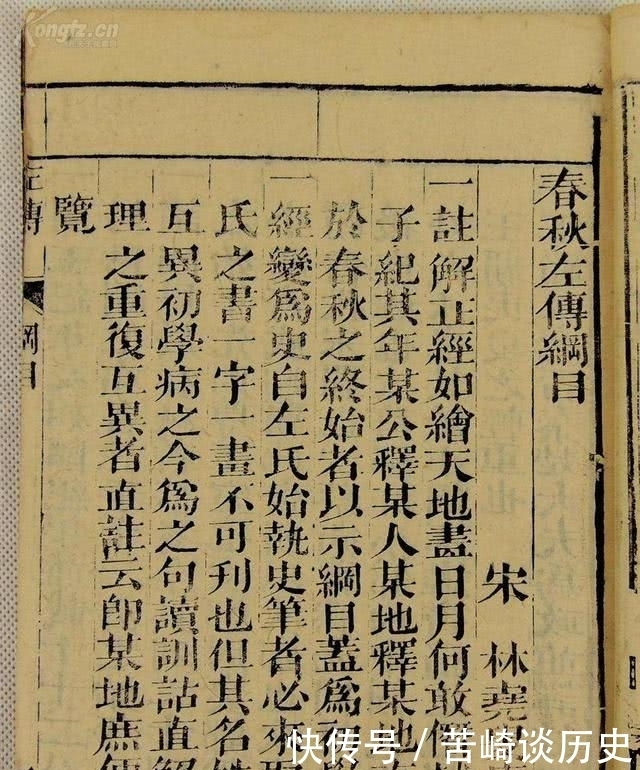 春秋左傳綱目
宋 林堯
一註解正經如繪天地盡日月何敢
子紀其年某公釋某人某地釋某地
於春秋之終始者以示綱目蓋爲
一經變爲史自左氏始執史筆者必來
氏之書一字一畫不可刊也但其名
互異初學病之今爲之句讀訓詁直
理之重復互異者直註云即某地庶
覽
左傳 綱目
Kongfz.cn
快传号 / 苦崎谈历史